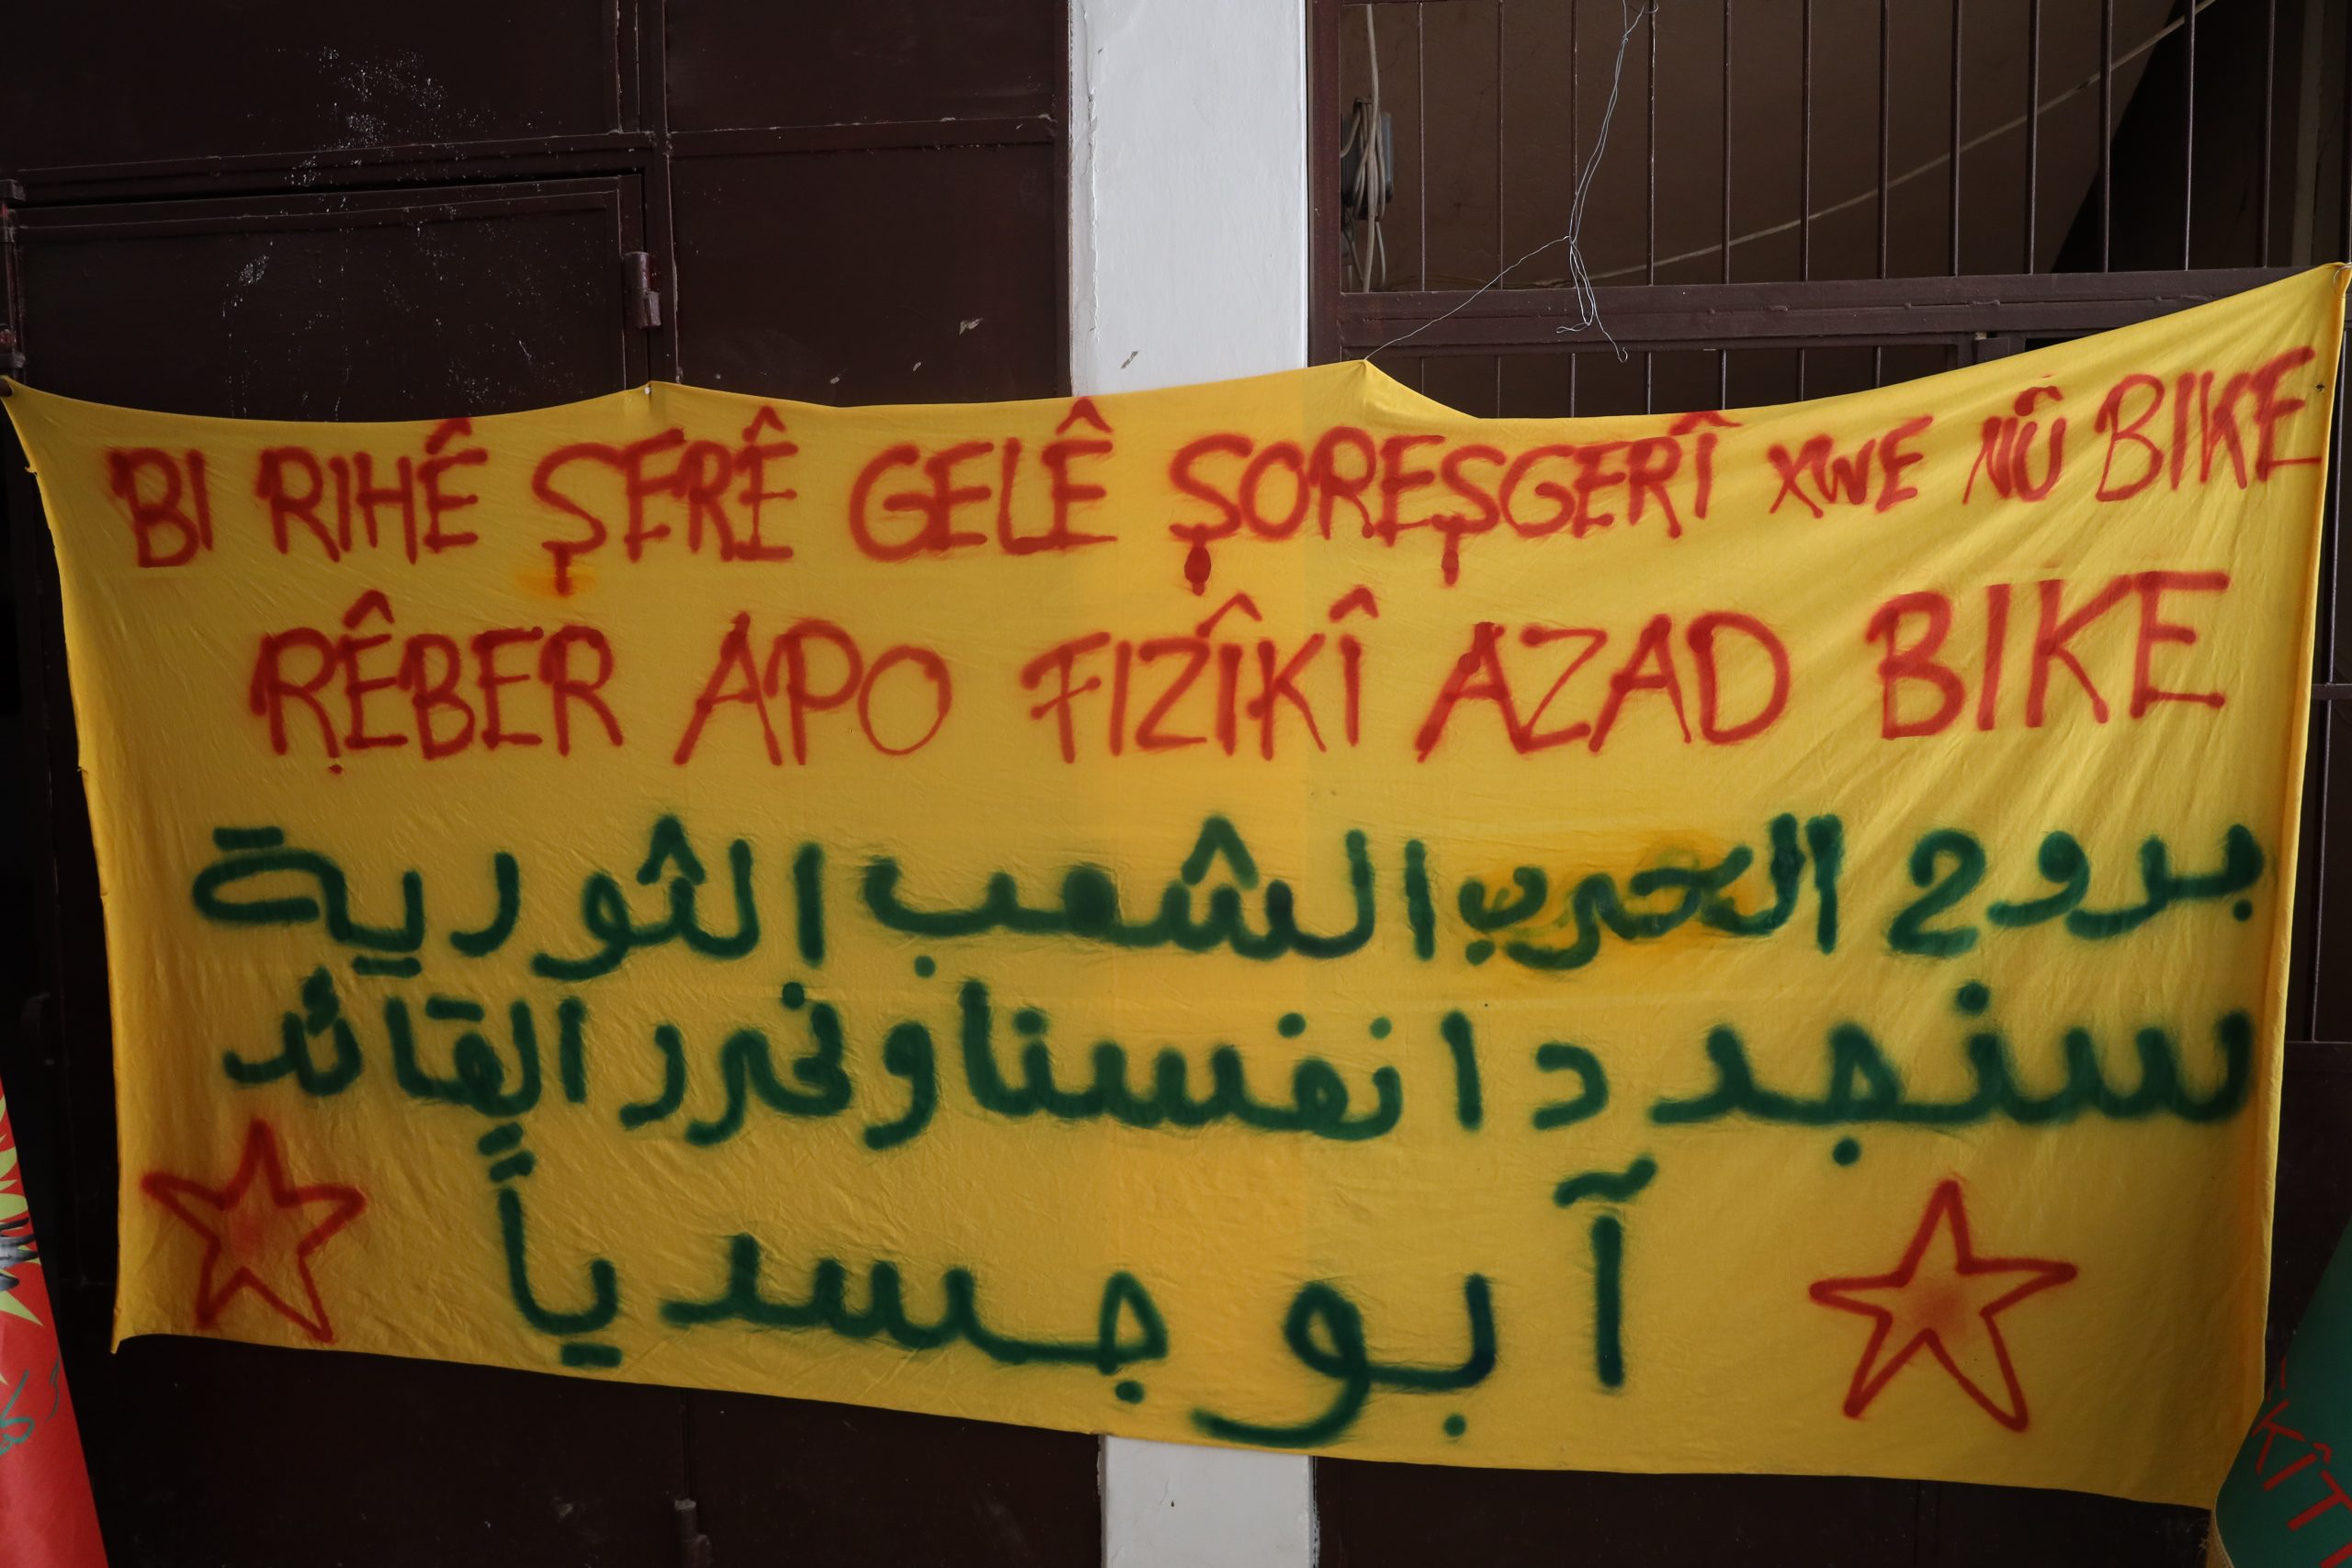 BI RIHÊ ŞERÊ GELÊ ŞOREŞGERÎ XWE NÛ BIKE
RÊBER APO FIZÎKÎ AZAD BIKE
بروح الحرب الشعب الثورية
سنجدد انفسنا ونحرر القائد
آبو جسدياً
KÎT